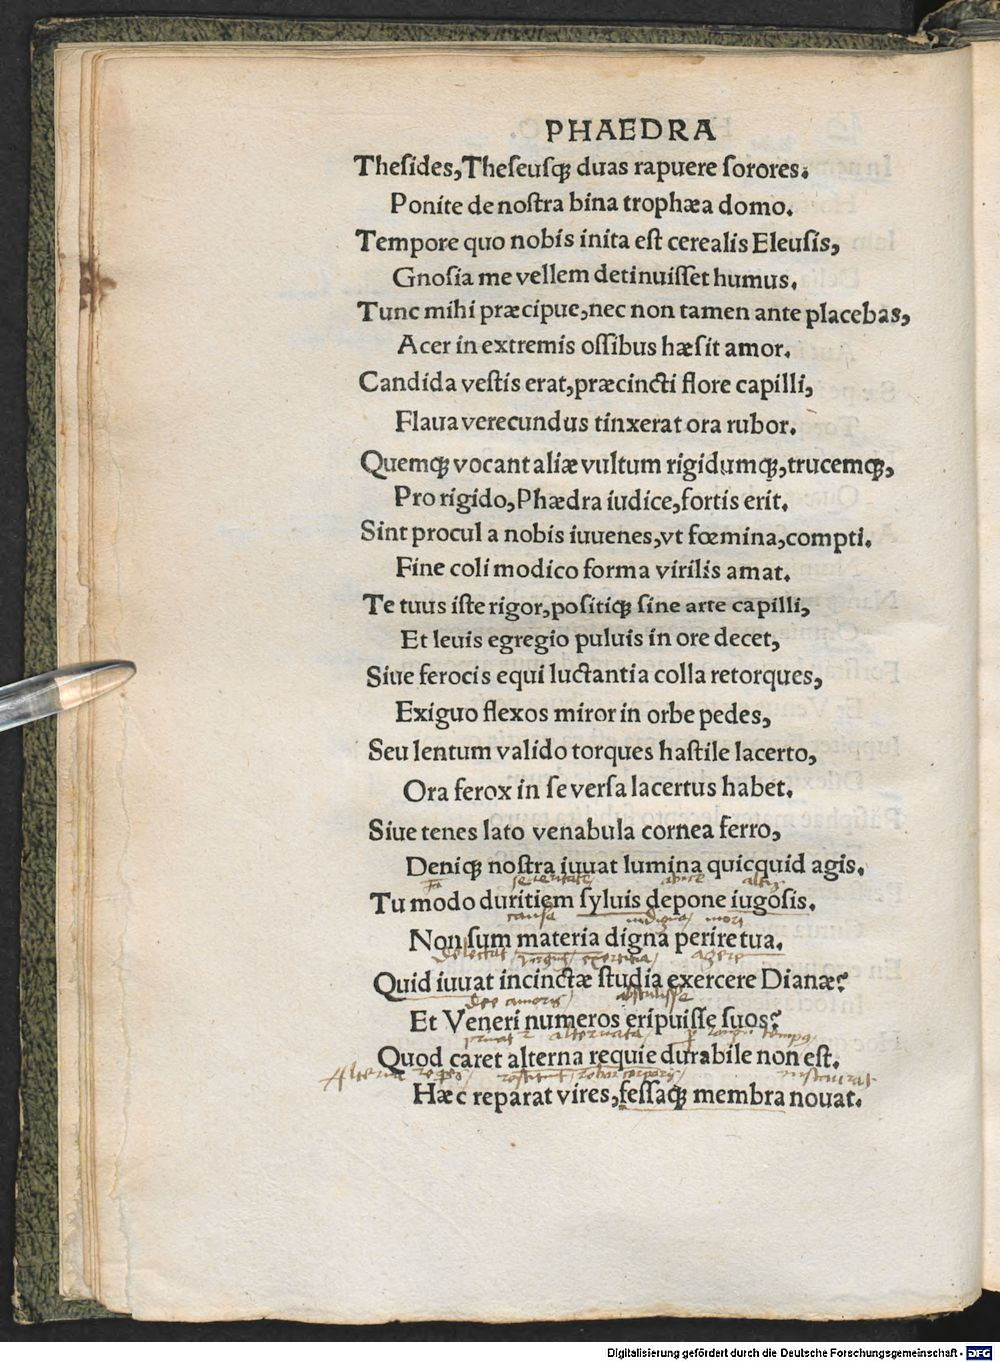 PHAEDRA
Theſides,Theſeuſq; duas rapuere ſorores.
Ponite de noſtra bina trophæa domo.
Tempore quo nobis inita eſt cerealis Eleuſis,
Gnoſia me vellem detinuiſſet humus.
Tunc mihi præcipue,nec non tamen ante placebas,
Acer in extremis oſſibus hæſit amor.
Candida veſtis erat,præcincti flore capilli,
Flaua verecundus tinxerat ora rubor.
Quemq; vocant aliæ vultum rigidumq;,trucemq;,
Pro rigido,Phædra iudice,fortis erit.
Sint procul a nobis iuuenes,vt fœmina,compti.
Fine coli modico forma virilis amat.
Te tuus iſte rigor,poſitiq; ſine arte capilli,
Et leuis egregio puluis in ore decet,
Siue ferocis equi luctantia colla retorques,
Exiguo flexos miror in orbe pedes,
Seu lentum valido torques haſtile lacerto,
Ora ferox in ſe verſa lacertus habet.
Siue tenes lato venabula cornea ferro,
Deniq; noſtra iuuat lumina quicquid agis.
ſeueritatē
Tu modo duritiem ſyluis depone iugoſis.
cauſa indigna mori
Non ſum materia digna perire tua.
delectat exercitia agere
Quid iuuat incinctæ ſtudia exercere Dianæ?
dee amoris abſtuliſſe
Et Veneri numeros eripuiſſe ſuos?
alternata
Quod caret alterna requie durabile non eſt.
Alterna reſtituit
Hæc reparat vires,feſſaq; membra nouat.
Digitalisierung gefördert durch die Deutsche Forschungsgemeinschaft - DFG